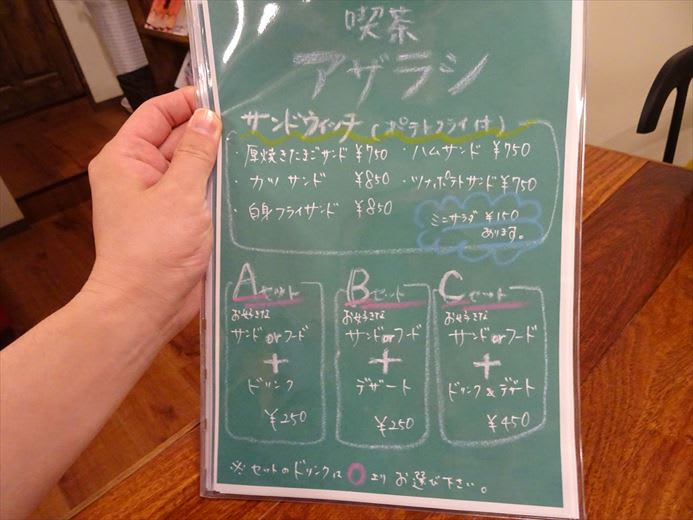 喫茶
アザラシ
サンドウィッチ (ポテトフライ付)
・厚焼きたまごサンド ¥750 ・ハムサンド ¥750
・カツサンド ¥850 ・ツナポテトサンド ¥750
・白身フライサンド ¥850
ミニサラダ ¥150
あります。
Aセット
お好きな
サンドorフード
+
ドリンク
¥250
Bセット
お好きな
サンドorフード
+
デザート
¥250
Cセット
お好きな
サンドorフード
+
ドリンク&デザート
¥450
※セットのドリンクは○よりお選び下さい。